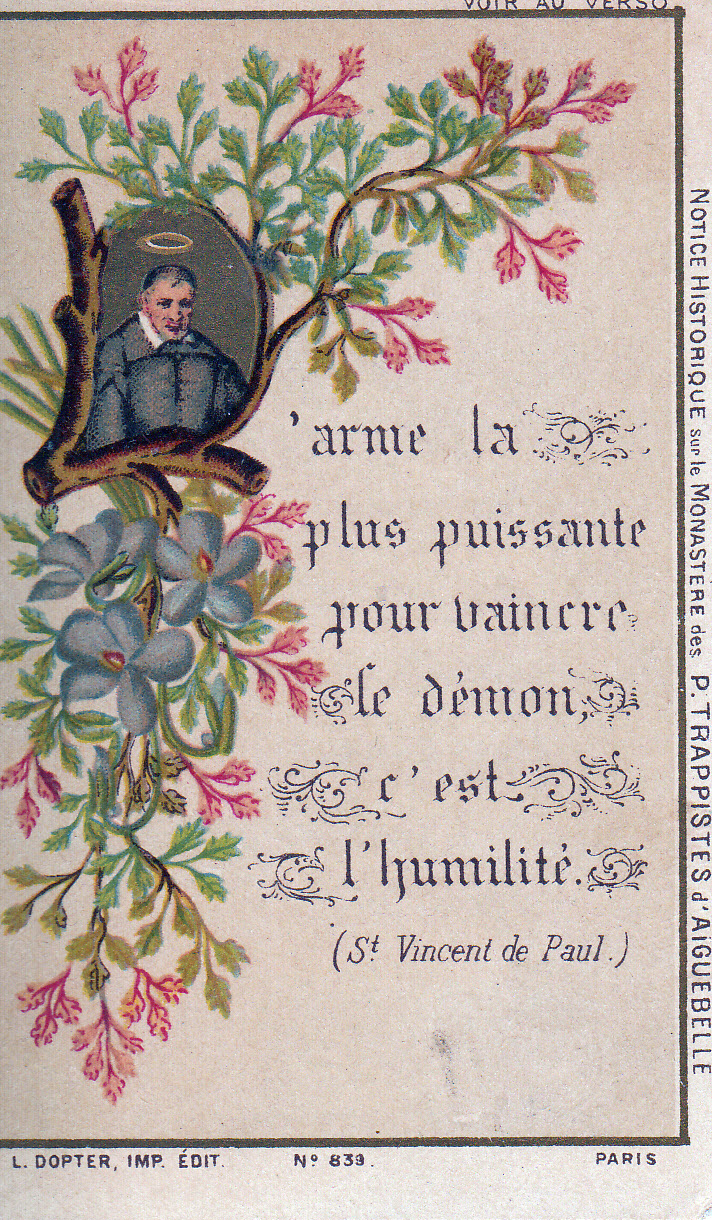 VOIR AU VERSO.
L'arme la
plus puissante
pour vaincre
le démon,
c'est
l'humilité.
(St Vincent de Paul.)
L. DOPTER, IMP. ÉDIT. Nº 839. PARIS
NOTICE HISTORIQUE sur le MONASTÈRE des P. TRAPPISTES d'AIGUEBELLE